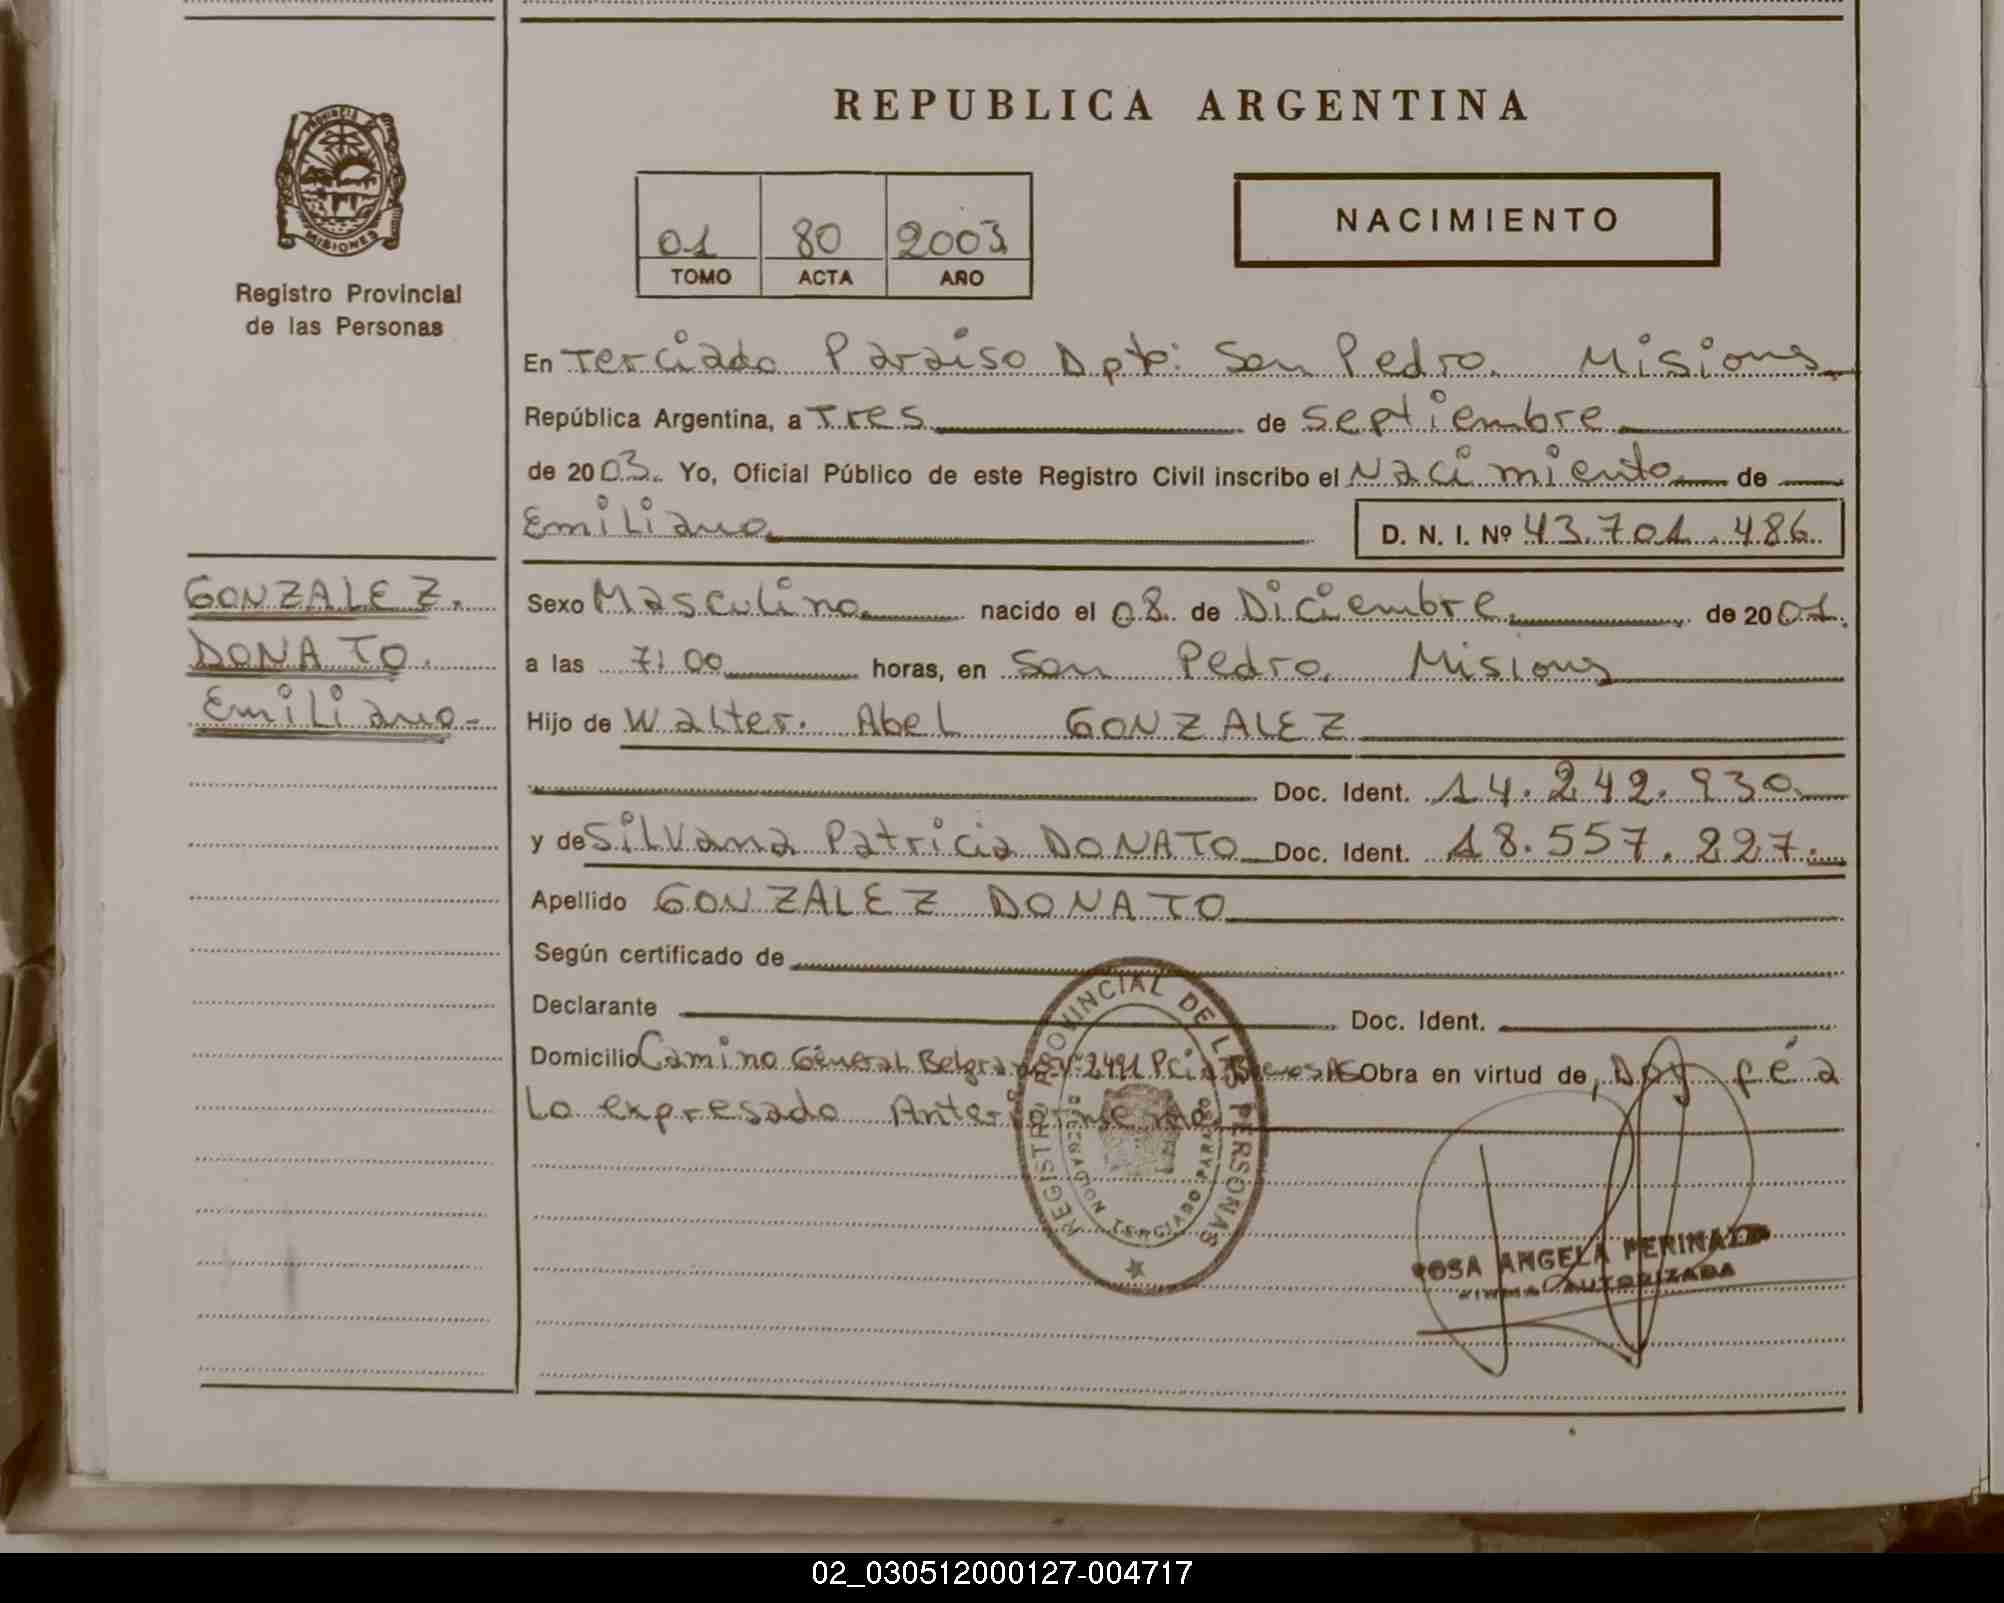 REPUBLICA ARGENTINA
PROVINCIA DE
MISIONES
Registro Provincial
de las Personas
01 80 2003
TOMO ACTA AÑO
NACIMIENTO
En Terciado Paraiso Dpto: San Pedro. Misiones
República Argentina, a Tres de septiembre
de 2003. Yo, Oficial Público de este Registro Civil inscribo el Nacimiento de
Emiliano D. N. I. Nº 43.701.486
GONZALEZ.
DONATO.
Emiliano-
Sexo Masculino nacido el 08 de Diciembre de 2001.
a las 7:00 horas, en San Pedro, Misiones
Hijo de Walter Abel GONZALEZ
Doc. Ident. 14.242.930
y de Silvana Patricia DONATO Doc. Ident. 18.557.227.
Apellido GONZALEZ DONATO
Según certificado de
Declarante Doc. Ident.
Domicilio Camino General Belgrano Nº 2491 Pcia Buenos AS Obra en virtud de, Doy fé a
Lo expresado Anteriormente
REGISTRO PROVINCIAL DE LAS PERSONAS
TERCIADO PARAISO
ROSA ANGELA
FIRMA AUTORIZADA
02_030512000127-004717